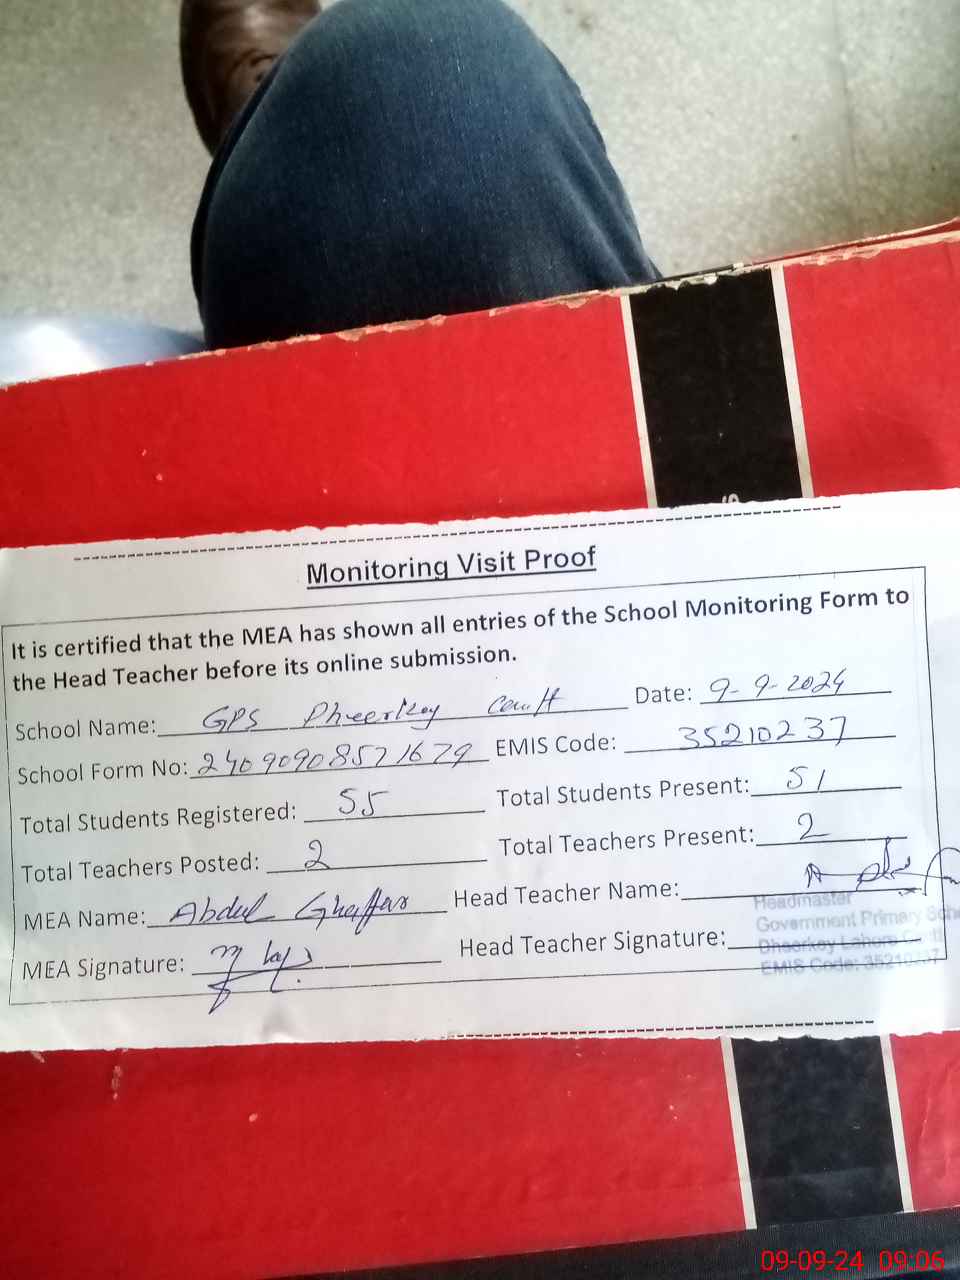 Monitoring Visit Proof
It is certified that the MEA has shown all entries of the School Monitoring Form to
the Head Teacher before its online submission.
School Name: GPS Dheerkey Cantt Date: 9-9-2024
School Form No: 240909085716 79 EMIS Code: 35210237
Total Students Registered: 55 Total Students Present: 51
Total Teachers Posted: 2 Total Teachers Present: 2
MEA Name: Abdul Ghaffar Head Teacher Name:
Headmaster
Government Primary Scho
MEA Signature: Head Teacher Signature:
Dheerkey Lahore Cantt
EMIS Code: 35210237
09-09-24 09:06